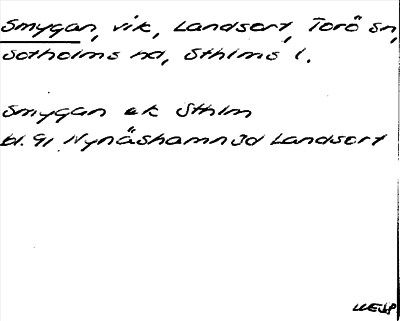 Smygan, vik, Landsort, Torö sn,
Sotholms hd, Sthlms l.
Smygan ek Sthlm
bl. 91 Nynäshamn Sd Landsort